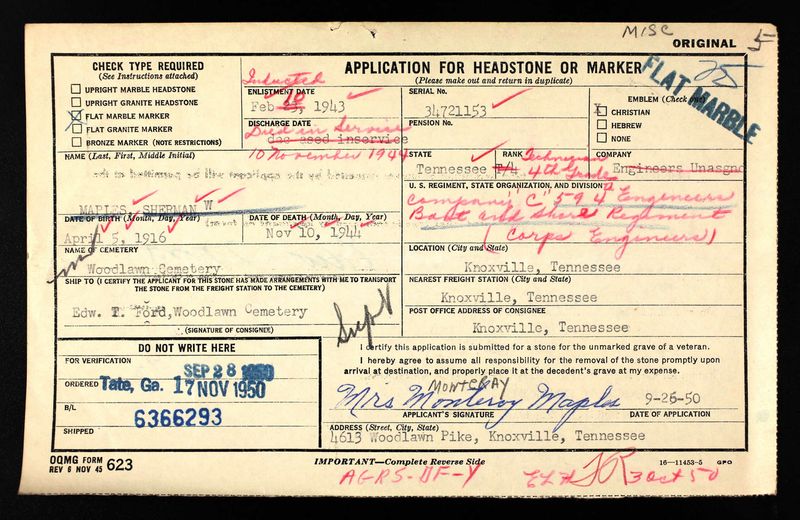 MISC
ORIGINAL 5
CHECK TYPE REQUIRED
(See Instructions attached)
UPRIGHT MARBLE HEADSTONE
UPRIGHT GRANITE HEADSTONE
X FLAT MARBLE MARKER
FLAT GRANITE MARKER
BRONZE MARKER (NOTE RESTRICTIONS)
APPLICATION FOR HEADSTONE OR MARKER
(Please make out and return in duplicate)
FLAT MARBLE
25
Inducted
ENLISTMENT DATE
Feb 10, 1943
SERIAL No.
34721153
EMBLEM (Check one)
X CHRISTIAN
HEBREW
NONE
DISCHARGE DATE
Died in Service
deceased inservice
10 November 1944
PENSION No.
NAME (Last, First, Middle Initial)
MAPLES, SHERMAN W
STATE
Tennessee
RANK
T/4
Technician
4th Grade
COMPANY
Engineers Unasgnd
U. S. REGIMENT, STATE ORGANIZATION, AND DIVISION
Company "C" 594th Engineers
Boat and Shore Regiment
(Corps Engineers)
DATE OF BIRTH (Month, Day, Year)
April 5, 1916
DATE OF DEATH (Month, Day, Year)
Nov 10, 1944
NAME OF CEMETERY
Woodlawn Cemetery
LOCATION (City and State)
Knoxville, Tennessee
SHIP TO (I CERTIFY THE APPLICANT FOR THIS STONE HAS MADE ARRANGEMENTS WITH ME TO TRANSPORT
THE STONE FROM THE FREIGHT STATION TO THE CEMETERY)
Edw. T. Ford, Woodlawn Cemetery
(SIGNATURE OF CONSIGNEE)
NEAREST FREIGHT STATION (City and State)
Knoxville, Tennessee
POST OFFICE ADDRESS OF CONSIGNEE
Knoxville, Tennessee
DO NOT WRITE HERE
FOR VERIFICATION
SEP 28 1950
ORDERED
Tate, Ga. 17 NOV 1950
B/L
6366293
SHIPPED
I certify this application is submitted for a stone for the unmarked grave of a veteran.
I hereby agree to assume all responsibility for the removal of the stone promptly upon
arrival at destination, and properly place it at the decedent's grave at my expense.
MONTERAY
Mrs Monteroy Maples 9-26-50
APPLICANT'S SIGNATURE DATE OF APPLICATION
ADDRESS (Street, City, State)
4613 Woodlawn Pike, Knoxville, Tennessee
OQMG FORM
REV 6 NOV 45 623
IMPORTANT—Complete Reverse Side
16—11453-5 GPO
AGRS-DF-Y
3 Oct 50